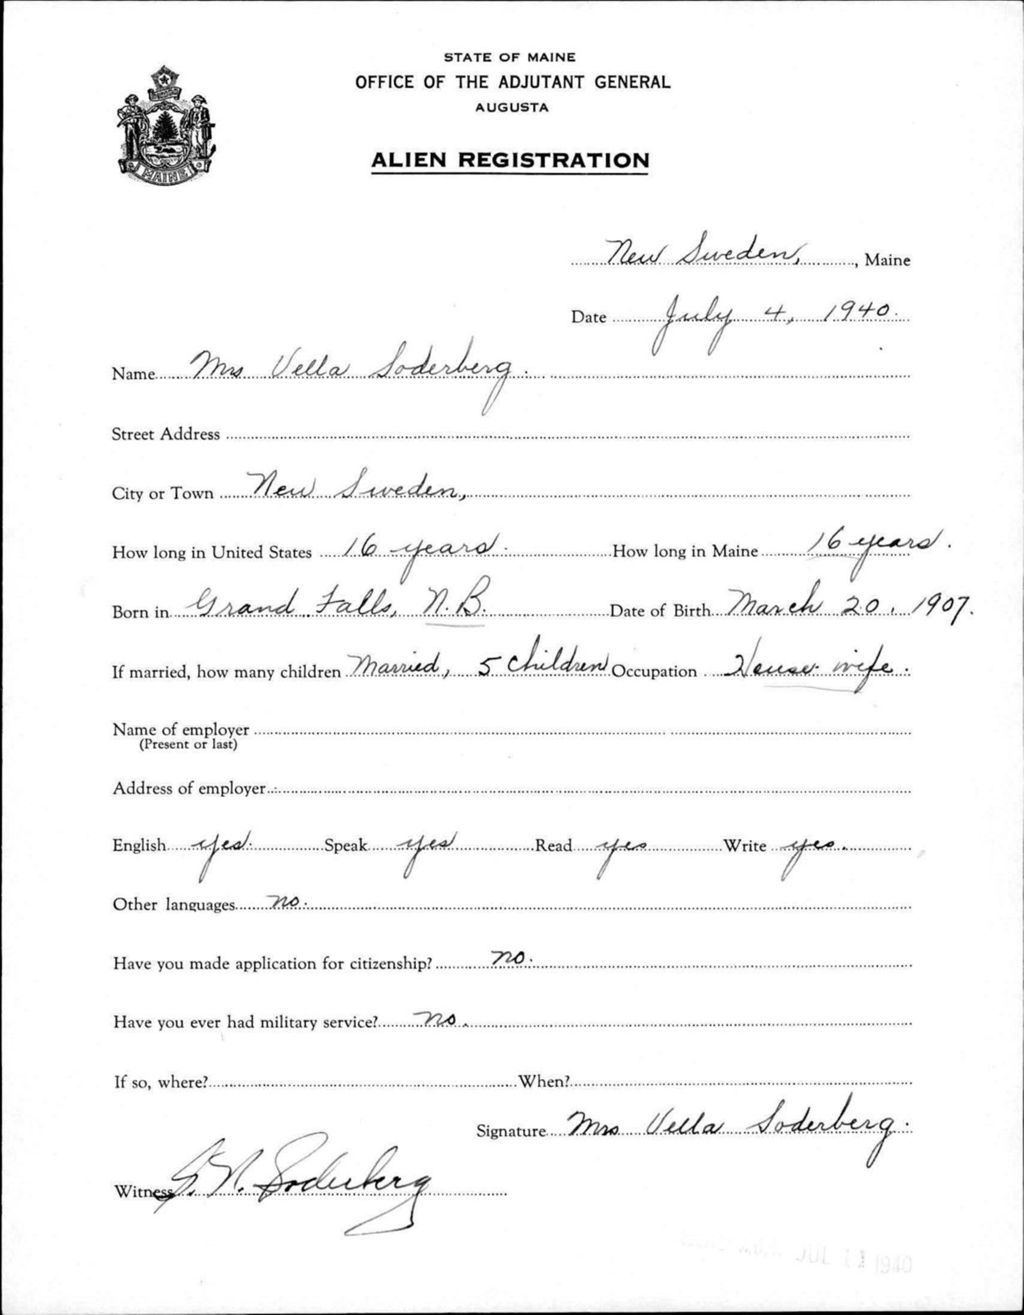 STATE OF MAINE
OFFICE OF THE ADJUTANT GENERAL
AUGUSTA
ALIEN REGISTRATION
MAINE
New Sweden, , Maine
Date July 4, 1940.
Name Mrs Vella Soderberg.
Street Address
City or Town New Sweden,
How long in United States 16 years. How long in Maine 16 years.
Born in Grand Falls, N.B. Date of Birth March 20, 1907.
If married, how many children Married, 5 children Occupation House wife.
Name of employer
(Present or last)
Address of employer
English yes. Speak yes Read yes Write yes.
Other languages no.
Have you made application for citizenship? no.
Have you ever had military service? no.
If so, where? When?
Signature Mrs Vella Soderberg.
Witness N. Soderberg
JUL 1940